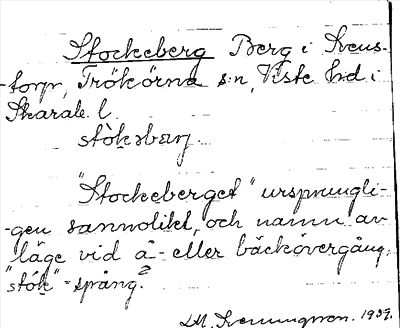 Stockeberg Berg i Kreus-
-torp, Trökörna s:n, Viste hd i
Skarab. l.
stòkəbærj.
"Stockeberget" ursprungli-
-gen sannolikt, och namn av
läge vid å- eller bäckövergång,
"stók" = spång?
1937.